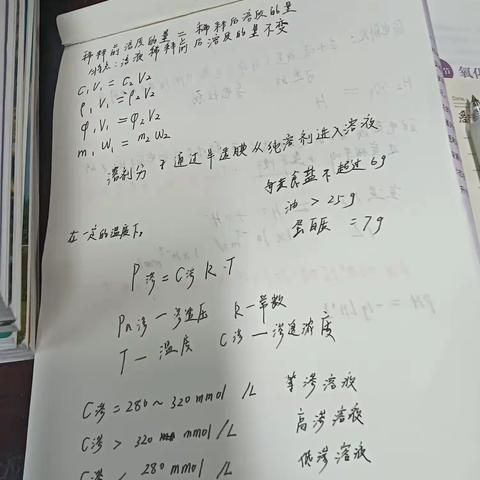 稀释前溶质的量 = 稀释后溶质的量
特点:溶液稀释前后溶质的量不变
C₁V₁ = C₂V₂
ρ₁V₁ = ρ₂V₂
φ₁V₁ = φ₂V₂
m₁W₁ = m₂W₂
溶剂分子通过半透膜从纯溶剂进入溶液
每天食盐不超过6g
油 > 25g
蛋白质 = 7g
在一定的温度下,
P渗 = C渗 R·T
渗 — 渗透压 R — 常数
T — 温度 C渗 — 渗透浓度
C渗 = 280 ~ 320 mmol/L 等渗溶液
C渗 > 320 mmol/L 高渗溶液
C渗 280 mmol/L 低渗溶液
氧化